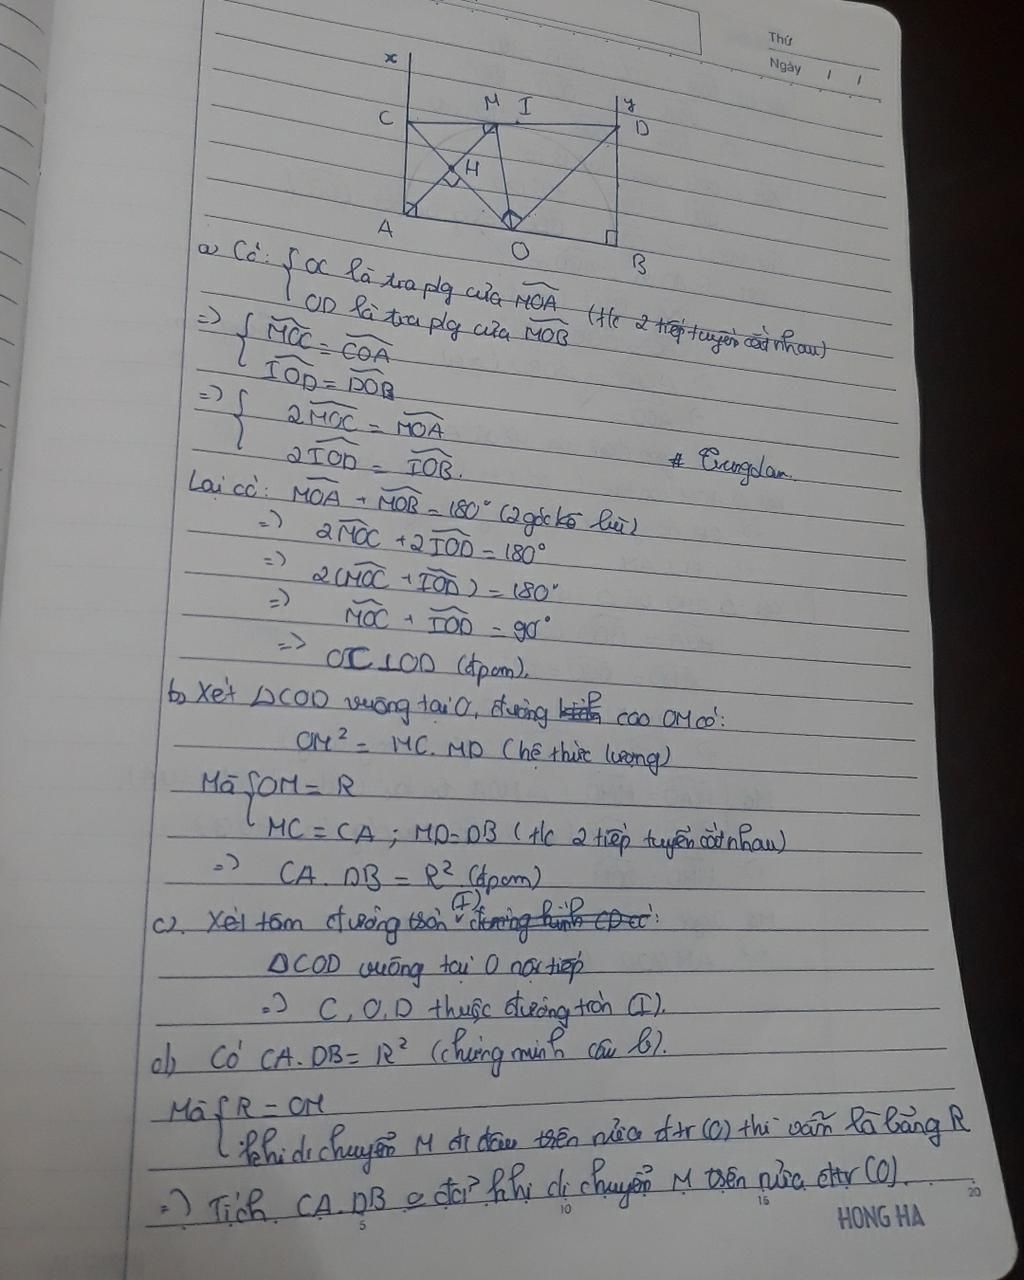 Thứ
Ngày / /
x
y
C
M
I
D
H
A
O
B
a) Có: { OC là tia plg của MOA (t/c 2 tiếp tuyến cắt nhau)
OD là tia plg của MOB
=> { MOC = COA
IOD = DOB
=> { 2MOC = MOA
2IOD = IOB.
Lại có: MOA + MOB = 180° (2 góc kề bù)
=> 2MOC + 2IOD = 180°
=> 2(MOC + IOD) = 180°
=> MOC + IOD = 90°
=> OC ⊥ OD (đpcm).
b) Xét ΔCOD vuông tại O, đường cao OM có:
OM² = MC. MD (hệ thức lượng)
Mà { OM = R
MC = CA ; MD = DB (t/c 2 tiếp tuyến cắt nhau)
=> CA. DB = R² (đpcm)
c). Xét tâm đường tròn (I) đường kính CD có:
ΔCOD vuông tại O nội tiếp
=> C, O, D thuộc đường tròn (I).
d) Có CA. DB = R² (chứng minh câu b).
Mà { R = OM
khi di chuyển M đi đâu trên nửa đtr (O) thì vẫn là bằng R
=> Tích CA. DB o đổi khi di chuyển M trên nửa đtr (O).
5 10 15 20
HONG HA